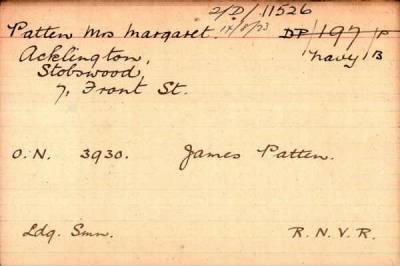 2/D/11526
Patten Mrs Margaret. DP/197/P
Acklington, Navy/B
Stobswood,
7, Front St.
O.N. 3930. James Patten.
Ldg. Smn. R.N.V.R.